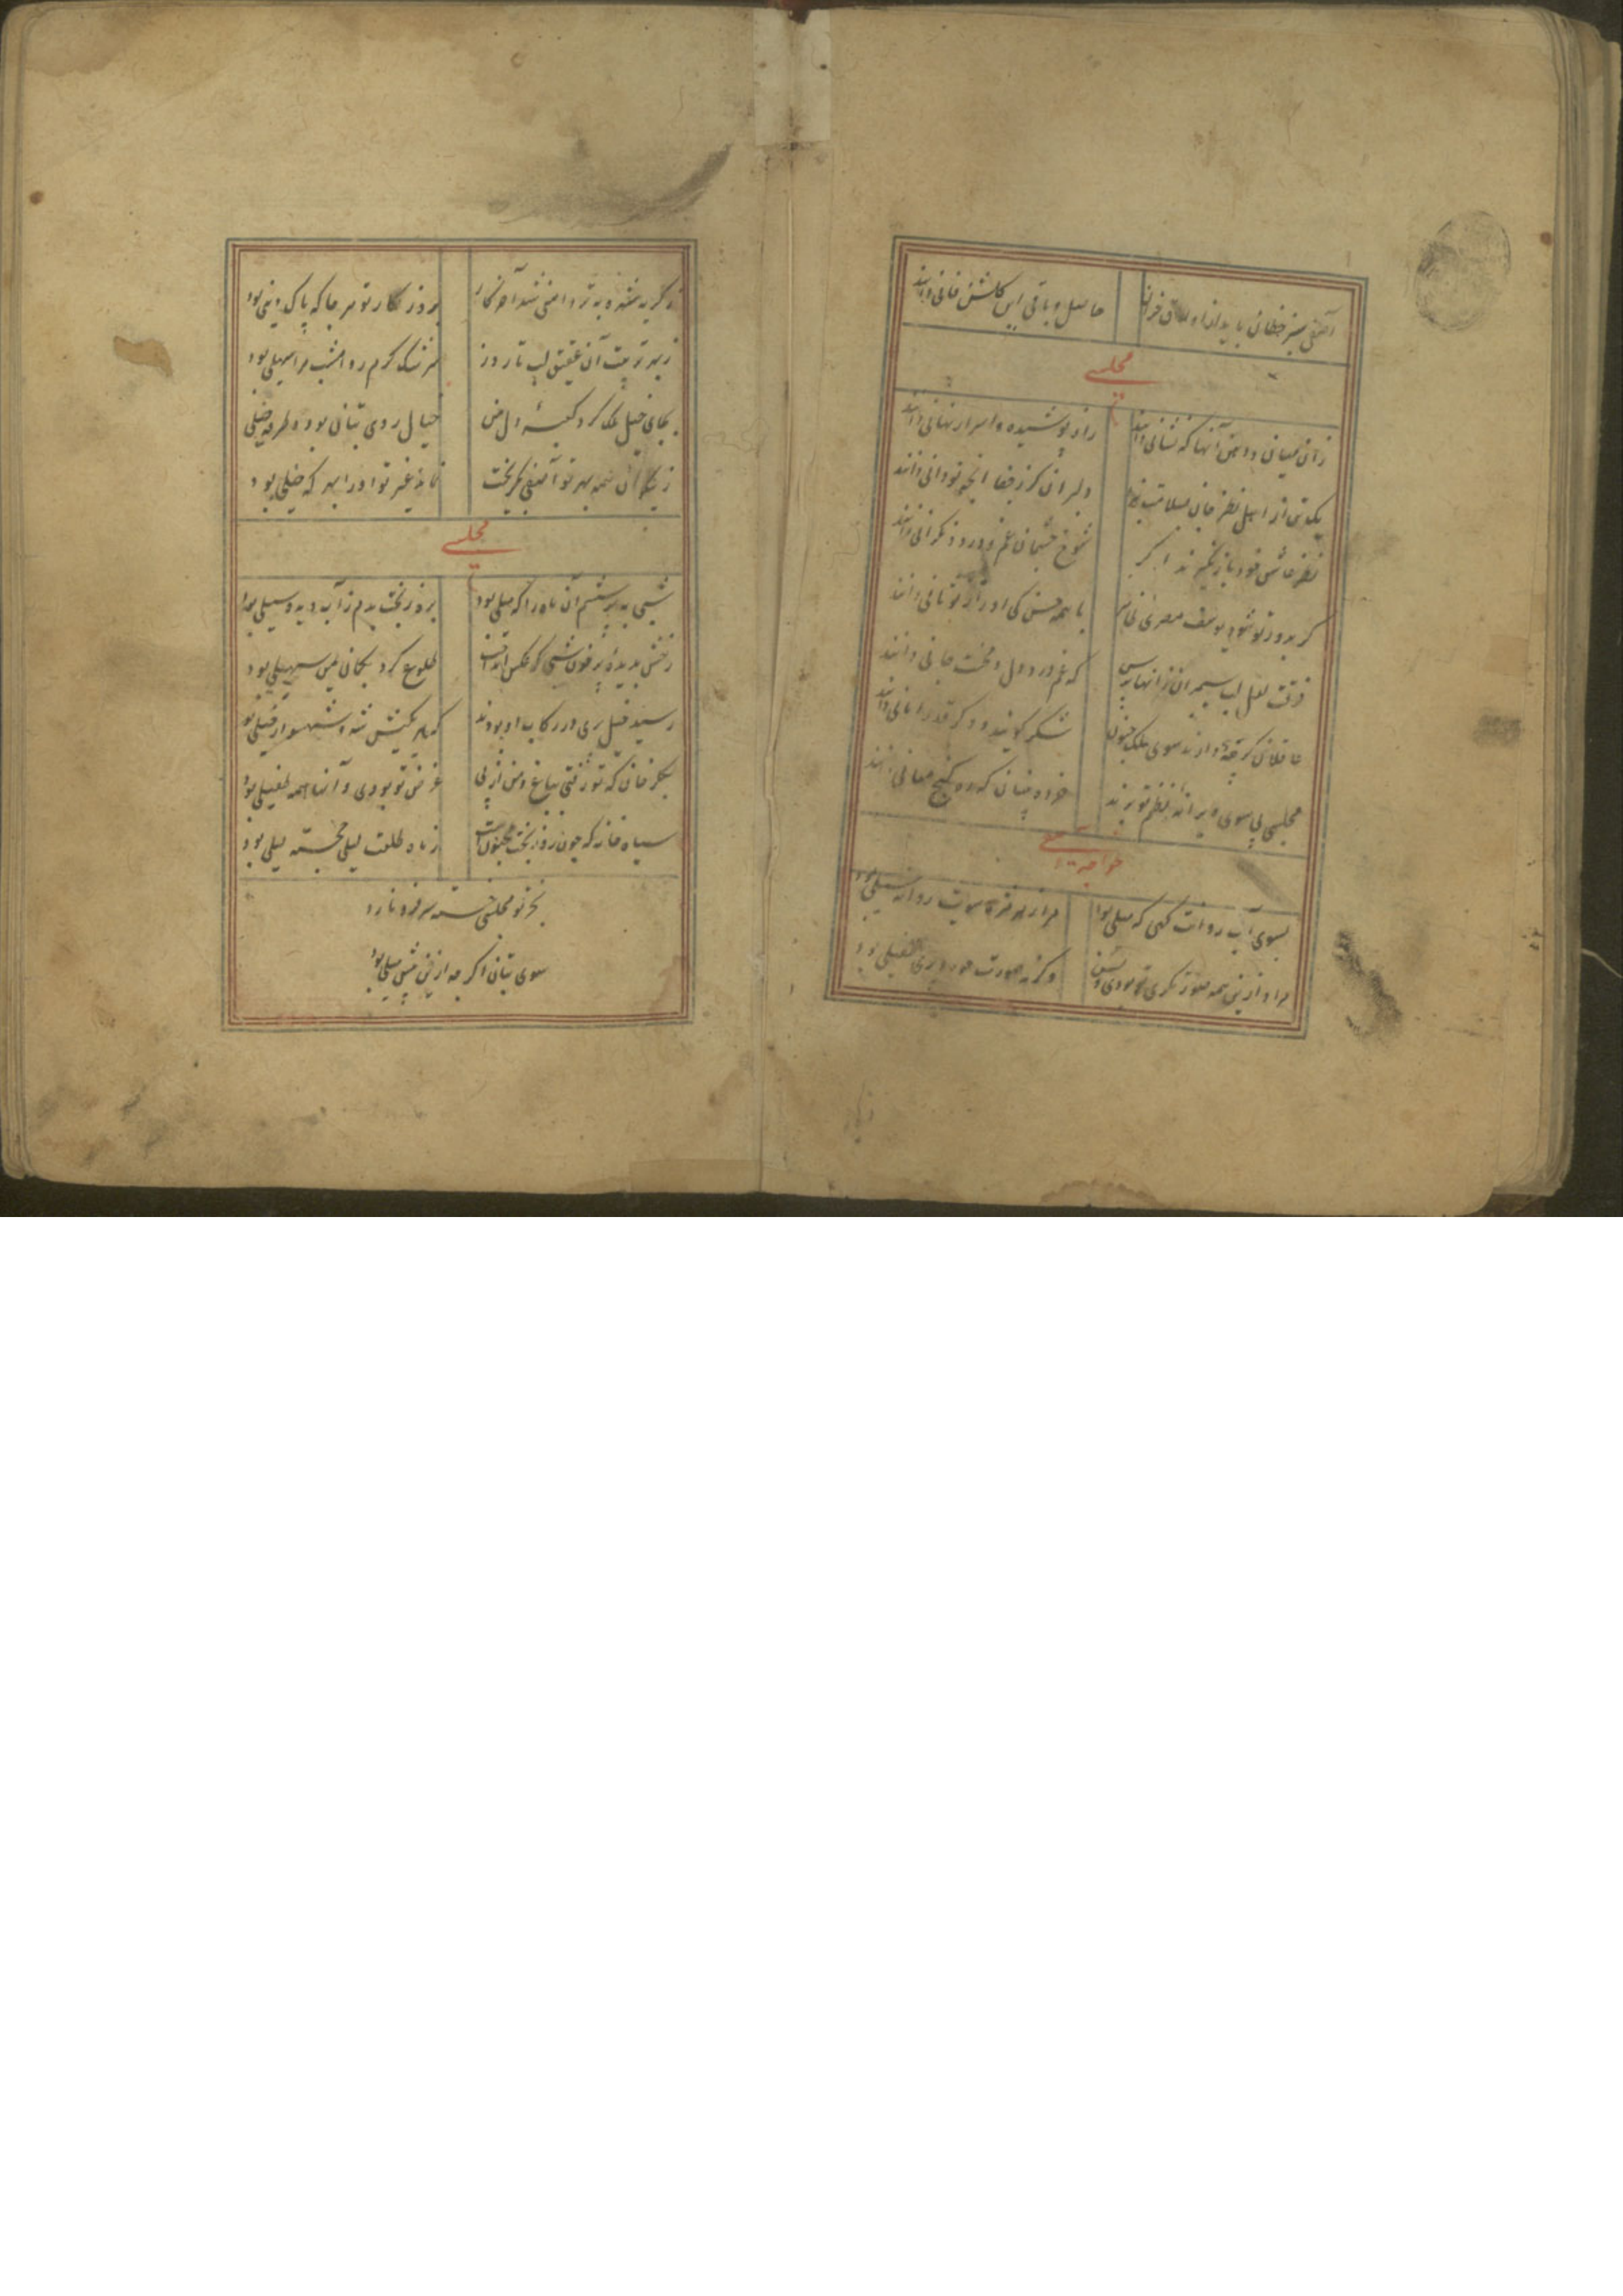 آصفی سبز خطان باید از اوراق خزان حاصل و باقی این گلشن فانی دانند
مجلسی
زان میان و دهن آنها که نشانی دانند راز پوشیده و اسرار نهانی دانند
یک تن از اهل نظر جان بسلامت نبرد دلبران کر ز جفا آنچه تو دانی دانند
نظر عاشق خود باز نگیرند اگر شوخ چشمان غم و درد نگرانی دانند
گر بدور تو شود یوسف مصری با همه حسن کی او را بتو ثانی دانند
ذوقت لعل لب سیمبران زانها پرس که غم و درد دل و محنت جانی دانند
عاقلان گرچه ندارند سوی ملک جنون شکر گویند و دگر قدر امانی دانند
مجلسی پی سوی ویرانه نظم تو برند خرده بینان که ره گنج معانی دانند
خواجه آصفی
بسوی آب روانت گهی که میلی بود مرا ز هر مژه سویت روانه سیلی بود
مراد ازین همه صورتگری تو بودی و بس وگرنه صورت حور و پری طفیلی بود
ز گریه شهره به تر دامنی شد آخر کار بروزگار تو هر جا که پاک ذیلی بود
ز بهر تربیت آن عقیق لب تا روز سرشک گرم رو امشب مرا سهیلی بود
بجای خیل ملک گرد کعبه دل من خیال روی بتان بود و طرفه خیلی بود
ز نیکوان همه بهر تو آصفی بگریخت نماند غیر تو او را بهر که خیلی بود
مجلسی
شبی به پرسشم آن ماه را که میلی بود بروز بخت بدم ز آب دیده سیلی بود
رخش بدیده پر خون شبی که عکس انداخت طلوع کرد بکان یمن سهیلی بود
رسید خیل پری در رکاب او بودند که هر یکیش شه و شهسوار خیلی بود
بگلرخان که تو رفتی بباغ و من از پی غرض تو بودی و آنها همه طفیلی بود
سیاه خانه که چون روز بخت مجنونست ز ماه طلعت لیلی خجسته لیلی بود
بجز تو مجلسی خسته سر فرو نارد
سوی بتان اگرچه ازین پیش میلی بود